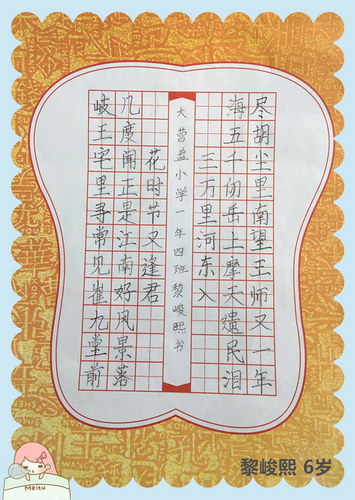 岐王宅里寻常见崔九堂前
几度闻正是江南好风景落
花时节又逢君
大营盘小学一年四班黎峻熙书
三万里河东入
海五千仞岳上摩天遗民泪
尽胡尘里南望王师又一年
黎峻熙 6岁
Meitu